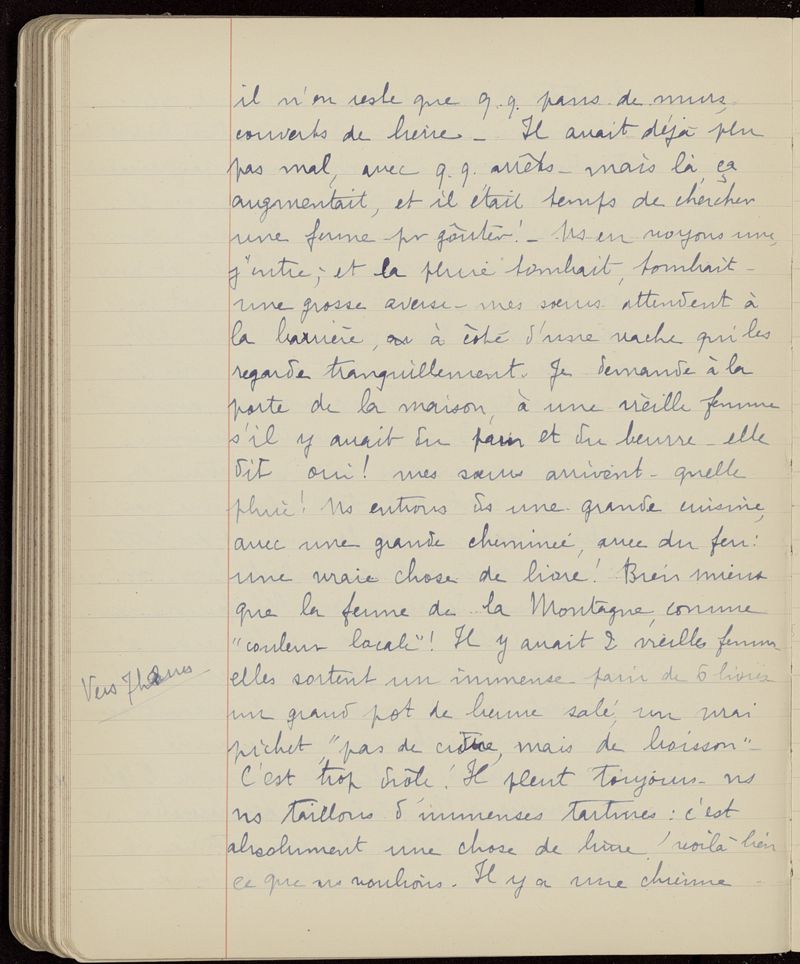 il n'en reste que q.q. pans de murs,
couverts de lierre – Il avait déjà plu
pas mal, avec q.q. arrêts – mais là, ça
augmentait, et il était temps de chercher
une ferme pr goûter ! – Ns en voyons une,
j'entre ; et la pluie tombait, tombait –
une grosse averse – mes sœurs attendent à
la barrière, à côté d'une vache qui les
regarde tranquillement. Je demande à la
porte de la maison, à une vieille femme
s'il y avait du pain et du beurre – elle
dit oui ! mes sœurs arrivent – quelle
pluie ! Ns entrons ds une grande cuisine,
avec une grande cheminée, avec du feu :
une vraie chose de livre ! Bien mieux
que la ferme de la Montagne, comme
"couleur locale" ! Il y avait 2 vieilles femmes
Vers 7 heures
elles sortent un immense pain de 6 livres
un grand pot de beurre salé, un vrai
pichet, "pas de cidre, mais de boisson" –
C'est trop drôle ! Il pleut toujours – ns
ns taillons d'immenses tartines : c'est
absolument une chose de livre ! voilà bien
ce que ns voulions. Il y a une chienne